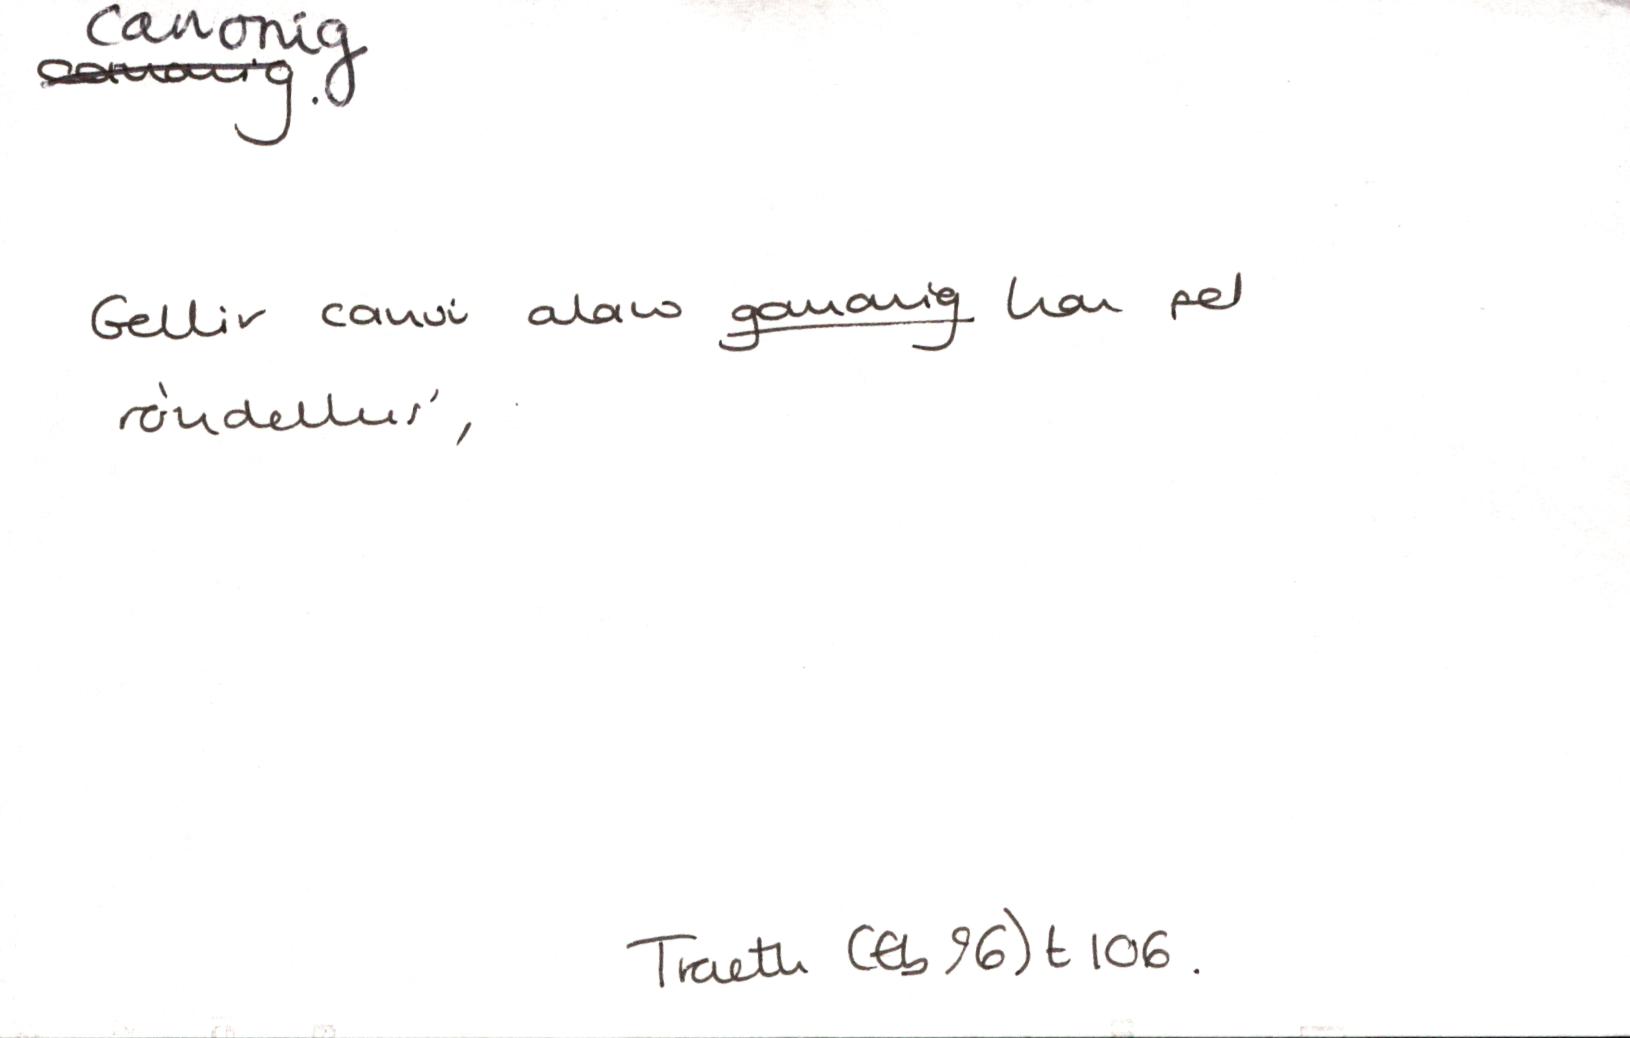 Canonig
canonig.
Gellir canu'r alaw ganonig hon fel
'rondellus',
Traeth (Eb 96) t 106.